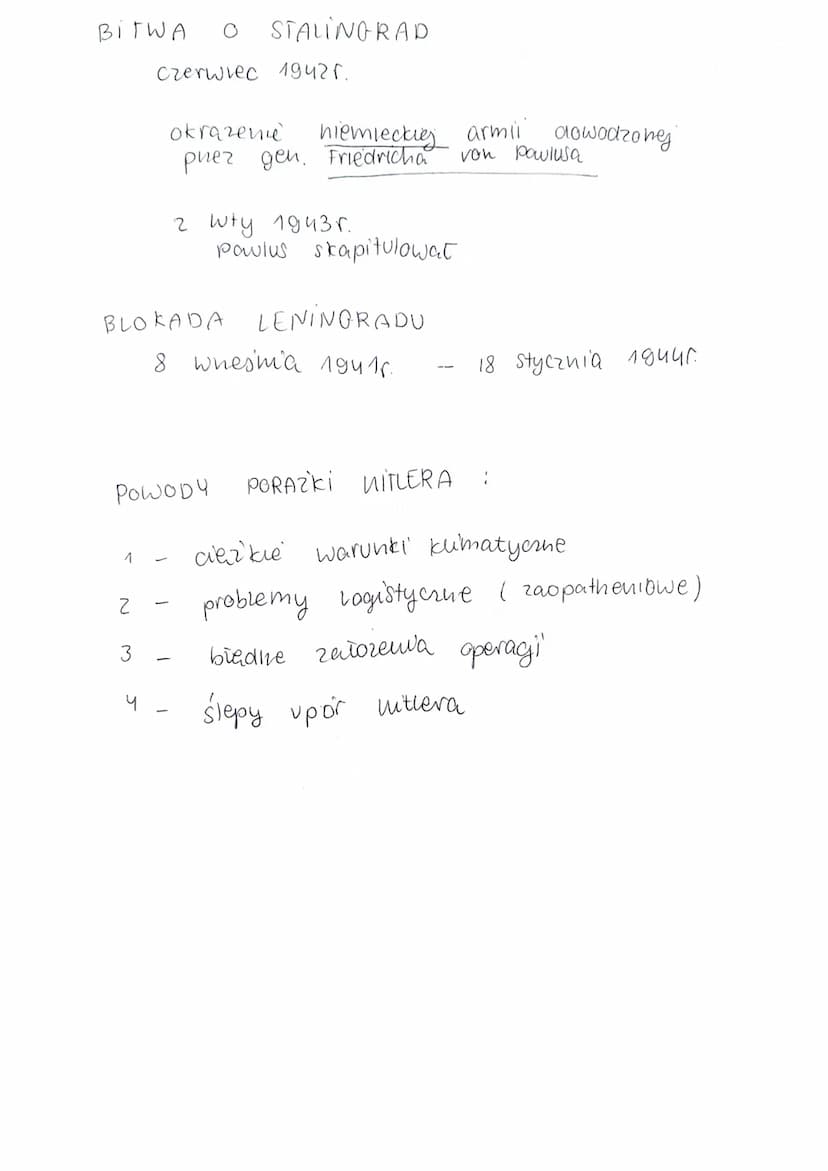 BITWA O STALINGRAD
czerwiec 1942r.
okrążenie niemieckiej armii dowodzonej
przez gen. Friedricha von Pawlusa
2 luty 1943r.
pawlus skapitulował
BLOKADA LENINGRADU
8 września 1941r. - 18 stycznia 1944r.
POWODY PORAŻKI HITLERA :
1 - ciężkie warunki klimatyczne
2 - problemy logistyczne (zaopatrzeniowe)
3 - błędne założenia operacji
4 - ślepy upór hitlera